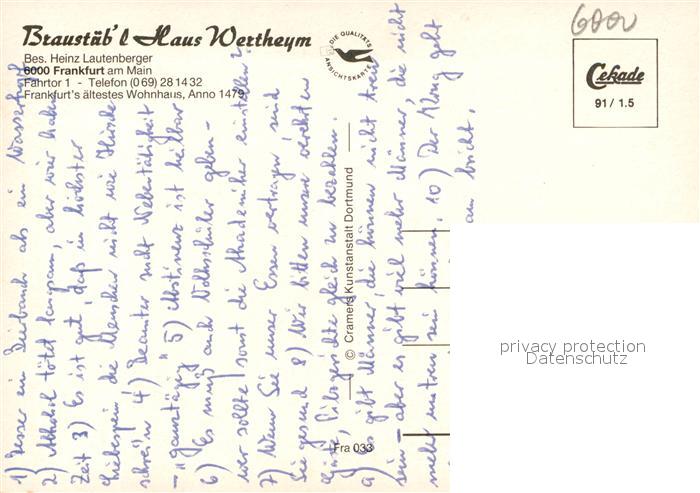 6000
Braustüb'l Haus Wertheym
Bes. Heinz Lautenberger
6000 Frankfurt am Main
Fahrtor 1 - Telefon (0 69) 28 14 32
Frankfurt's ältestes Wohnhaus, Anno 1479
DIE QUALITÄTS ANSICHTSKARTE
Cekade
91 / 1.5
© Cramers Kunstanstalt Dortmund
Fra 033
1) Besser ein Bierbauch als ein Wasserkopf
2) Alkohol tötet langsam, aber wir haben
Zeit 3) Es ist gut, daß in höchster
Liebespein die Menschen nicht wie Hirsche
schrein 4) Beamter sucht Nebentätigkeit
- "ganztägig" 5) Abstinenz ist heilbar
6) Es muß auch Volksschüler geben -
wer sollte sonst die Akademiker einstellen?
7) Wenn Sie unser Essen vertragen sind
Sie gesund 8) Wir bitten unsere verehrten
Gäste, Pilsgerichte gleich zu bezahlen.
9) gibt Männer, die können nicht treu
sein - aber es gibt viel mehr Männer, die nicht
nicht untreu sein können. 10) Der Krug geht
am bricht.
privacy protection
Datenschutz